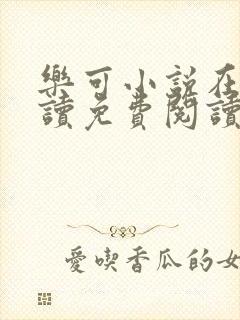 樂可小說在
讀免費閱讀
愛喫香瓜的女